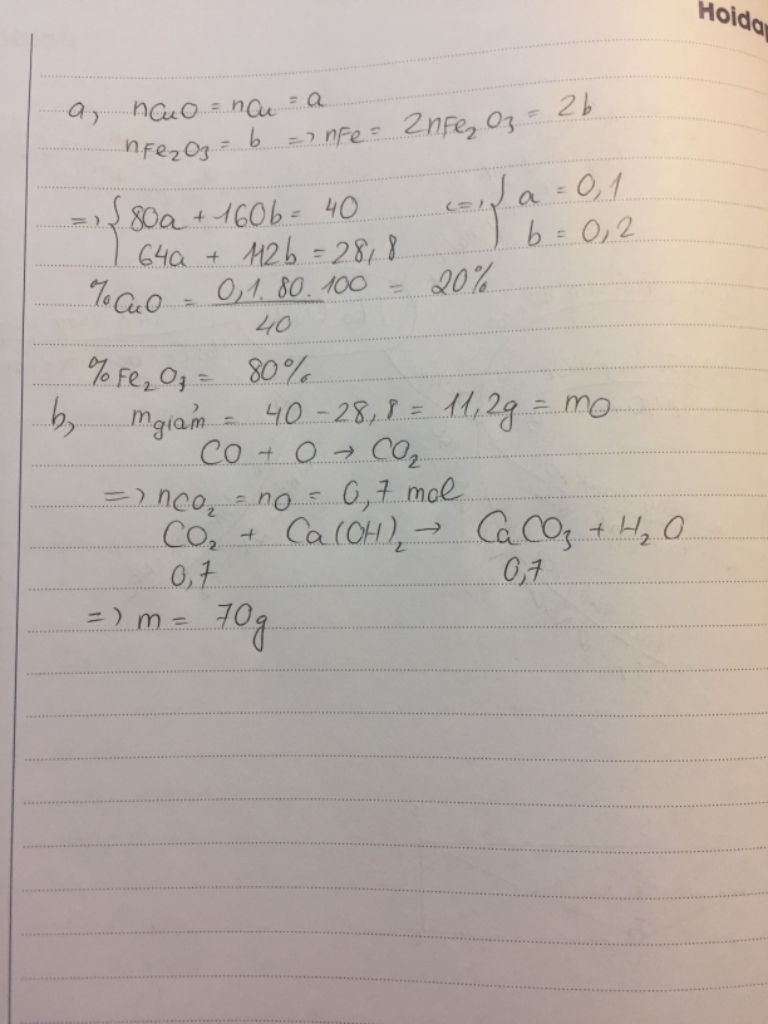 Hoidap
a, nCuO = nCu = a
nFe₂O₃ = b => nFe = 2nFe₂O₃ = 2b
=> { 80a + 160b = 40 <=> { a = 0,1
64a + 112b = 28,8 b = 0,2
%CuO = 0,1.80.100 / 40 = 20%
%Fe₂O₃ = 80%
b, mgiảm = 40 - 28,8 = 11,2g = mO
CO + O → CO₂
=> nCO₂ = nO = 0,7 mol
CO₂ + Ca(OH)₂ → CaCO₃ + H₂O
0,7 0,7
=> m = 70g